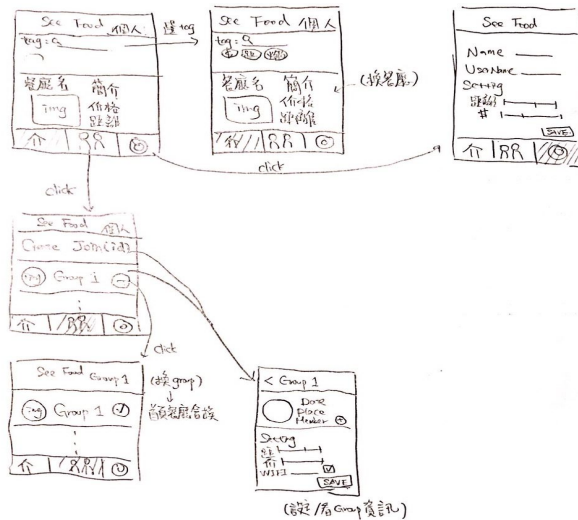 See Food 個人
tag:
餐廳名 簡介
img 价格
距離
介
搜 tag
See Food 個人
tag:
餐廳名 簡介
img 价格
距離
介
(换餐廳)
See Food
Name
UserName
Setting
距離
$
SAVE
介
click
click
See Food 個人
Join(id)
img Group 1
介
click
See Food Group 1
img Group 1
介
(换group)
< Group 1
Date
Place
Member
Setting
距
价
WIFI
SAVE
(設定/看Group資訊)